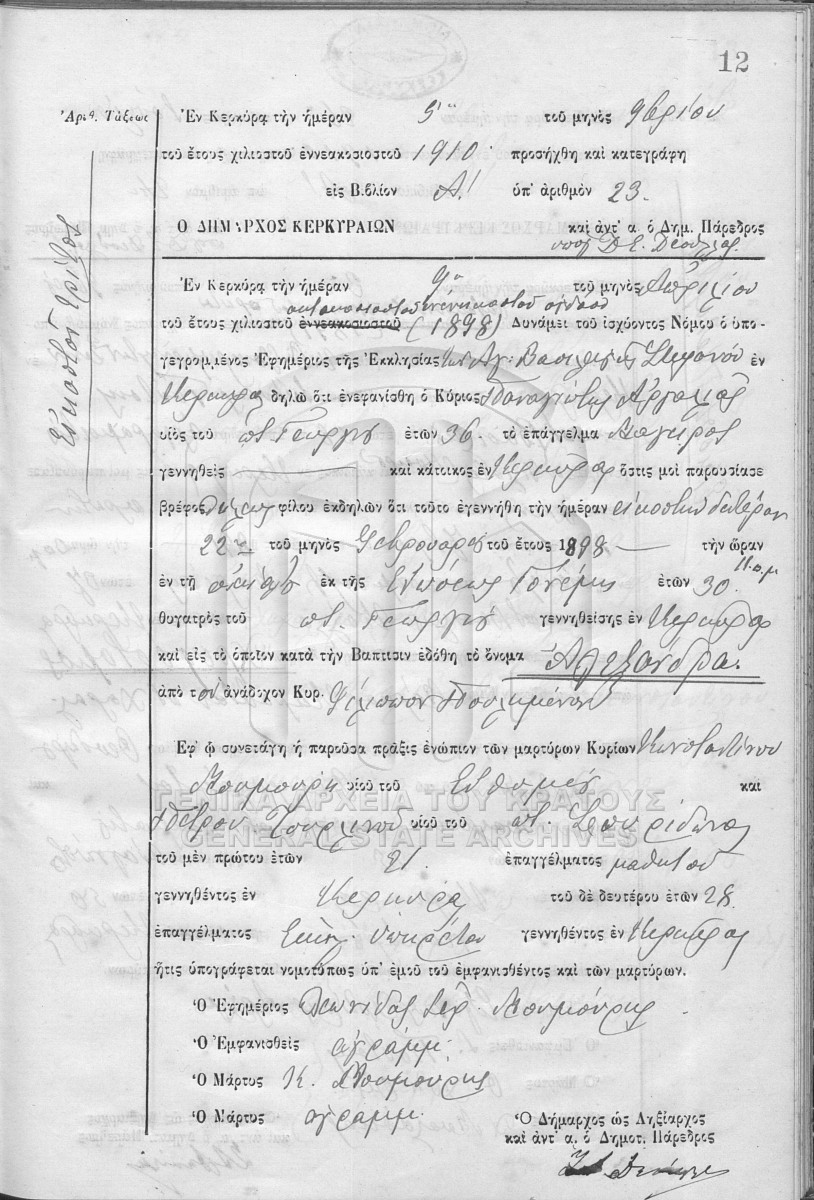 12
Ἀριθ. Τάξεως
Εἰκοστὸν τρίτον
Ἐν Κερκύρᾳ τὴν ἡμέραν 9ην τοῦ μηνὸς 9βρίου
τοῦ ἔτους χιλιοστοῦ ἐννεακοσιοστοῦ 1910 προσήχθη καὶ κατεγράφη
εἰς Βιβλίον Α! ὑπ' ἀριθμὸν 23.
Ο ΔΗΜΑΡΧΟΣ ΚΕΡΚΥΡΑΙΩΝ καὶ ἀντ' α. ὁ Δημ. Πάρεδρος
Ἐν Κερκύρᾳ τὴν ἡμέραν 9η τοῦ μηνὸς Ἀπριλίου
ὀκτακοσιοστοῦ ἐνενηκοστοῦ ὀγδόου
τοῦ ἔτους χιλιοστοῦ ἐννεακοσιοστοῦ (1898) Δυνάμει τοῦ ἰσχύοντος Νόμου ὁ ὑπο-
γεγρομμένος Ἐφημέριος τῆς Ἐκκλησίας τῶν Ἁγ: Βασιλείου Στεφάνου ἐν
Κερκύρᾳ δηλῶ ὅτι ἐνεφανίσθη ὁ Κύριος Παναγιώτης
υἱὸς τοῦ ποτ. Γεωργίου ἐτῶν 36. τὸ ἐπάγγελμα
γεννηθεὶς καὶ κάτοικος ἐν Κερκύρᾳ ὅστις μοὶ παρουσίασε
βρέφος θήλεως φίλου ἐκδηλῶν ὅτι τοῦτο ἐγεννήθη τὴν ἡμέραν εἰκοστὴν δευτέραν
22αν τοῦ μηνὸς Φεβρουαρίου τοῦ ἔτους 1898 τὴν ὥραν
11 π.μ
ἐν τῇ οἰκίᾳ του ἐκ τῆς ἐτῶν 30
θυγατρὸς τοῦ ποτ. Γεωργίου γεννηθείσης ἐν Κερκύρᾳ
καὶ εἰς τὸ ὁποῖον κατὰ τὴν Βάπτισιν ἐδόθη τὸ ὄνομα Ἀλεξάνδρα.
ἀπὸ τὸν ἀνάδοχον Κυρ. Φίλιππον
Ἐφ' ᾧ συνετάγη ἡ παροῦσα πρᾶξις ἐνώπιον τῶν μαρτύρων Κυρίων Κωνσταντίνου
Μουμούρη υἱοῦ τοῦ Εὐθυμίου καὶ
Πέτρου υἱοῦ τοῦ ποτ. Σπυρίδωνος
ΓΕΝΙΚΑ ΑΡΧΕΙΑ ΤΟΥ ΚΡΑΤΟΥΣ
GENERAL STATE ARCHIVES
τοῦ μὲν πρώτου ἐτῶν 21. ἐπαγγέλματος μαθητοῦ
γεννηθέντος ἐν Κερκύρᾳ τοῦ δὲ δευτέρου ἐτῶν 28
ἐπαγγέλματος ὑπηρέτου γεννηθέντος ἐν Κερκύρᾳ
ἥτις ὑπογράφεται νομοτύπως ὑπ' ἐμοῦ τοῦ ἐμφανισθέντος καὶ τῶν μαρτύρων.
Ὁ Ἐφημέριος Λεωνίδας Ἱερ. Μουμούρης
Ὁ Ἐμφανισθεὶς ἀγράμμ.
Ὁ Μάρτυς Κ. Μουμούρης
Ὁ Μάρτυς ἀγράμμ.
Ὁ Δήμαρχος ὡς Ληξίαρχος
καὶ ἀντ' α. ὁ Δημοτ. Πάρεδρος